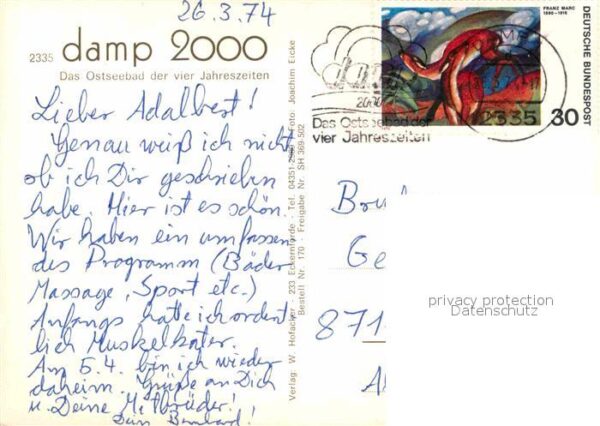 26.3.74
2335 damp 2000
Das Ostseebad der vier Jahreszeiten
Lieber Adalbert!
Genau weiß ich nicht
ob ich Dir geschrieben
habe. Hier ist es schön.
Wir haben ein umfassen
des Programm (Bäder
Massage, Sport etc.)
Anfangs hatte ich ordent
lich Muskelkater.
Am 5.4. bin ich wieder
daheim. Grüße an Dich
u. Deine Mitbrüder!
Dein Bernhard!
Verlag W. Hofacker - 233 Eckernförde - Tel. 04351-2 Foto: Joachim Eicke
Bestell Nr. 170 - Freigabe Nr. SH 369-502
FRANZ MARC
1880-1916
DEUTSCHE BUNDESPOST
30
2000
Das Ostseebad der
vier Jahreszeiten
2335
Br
Ge
871
A
privacy protection
Datenschutz